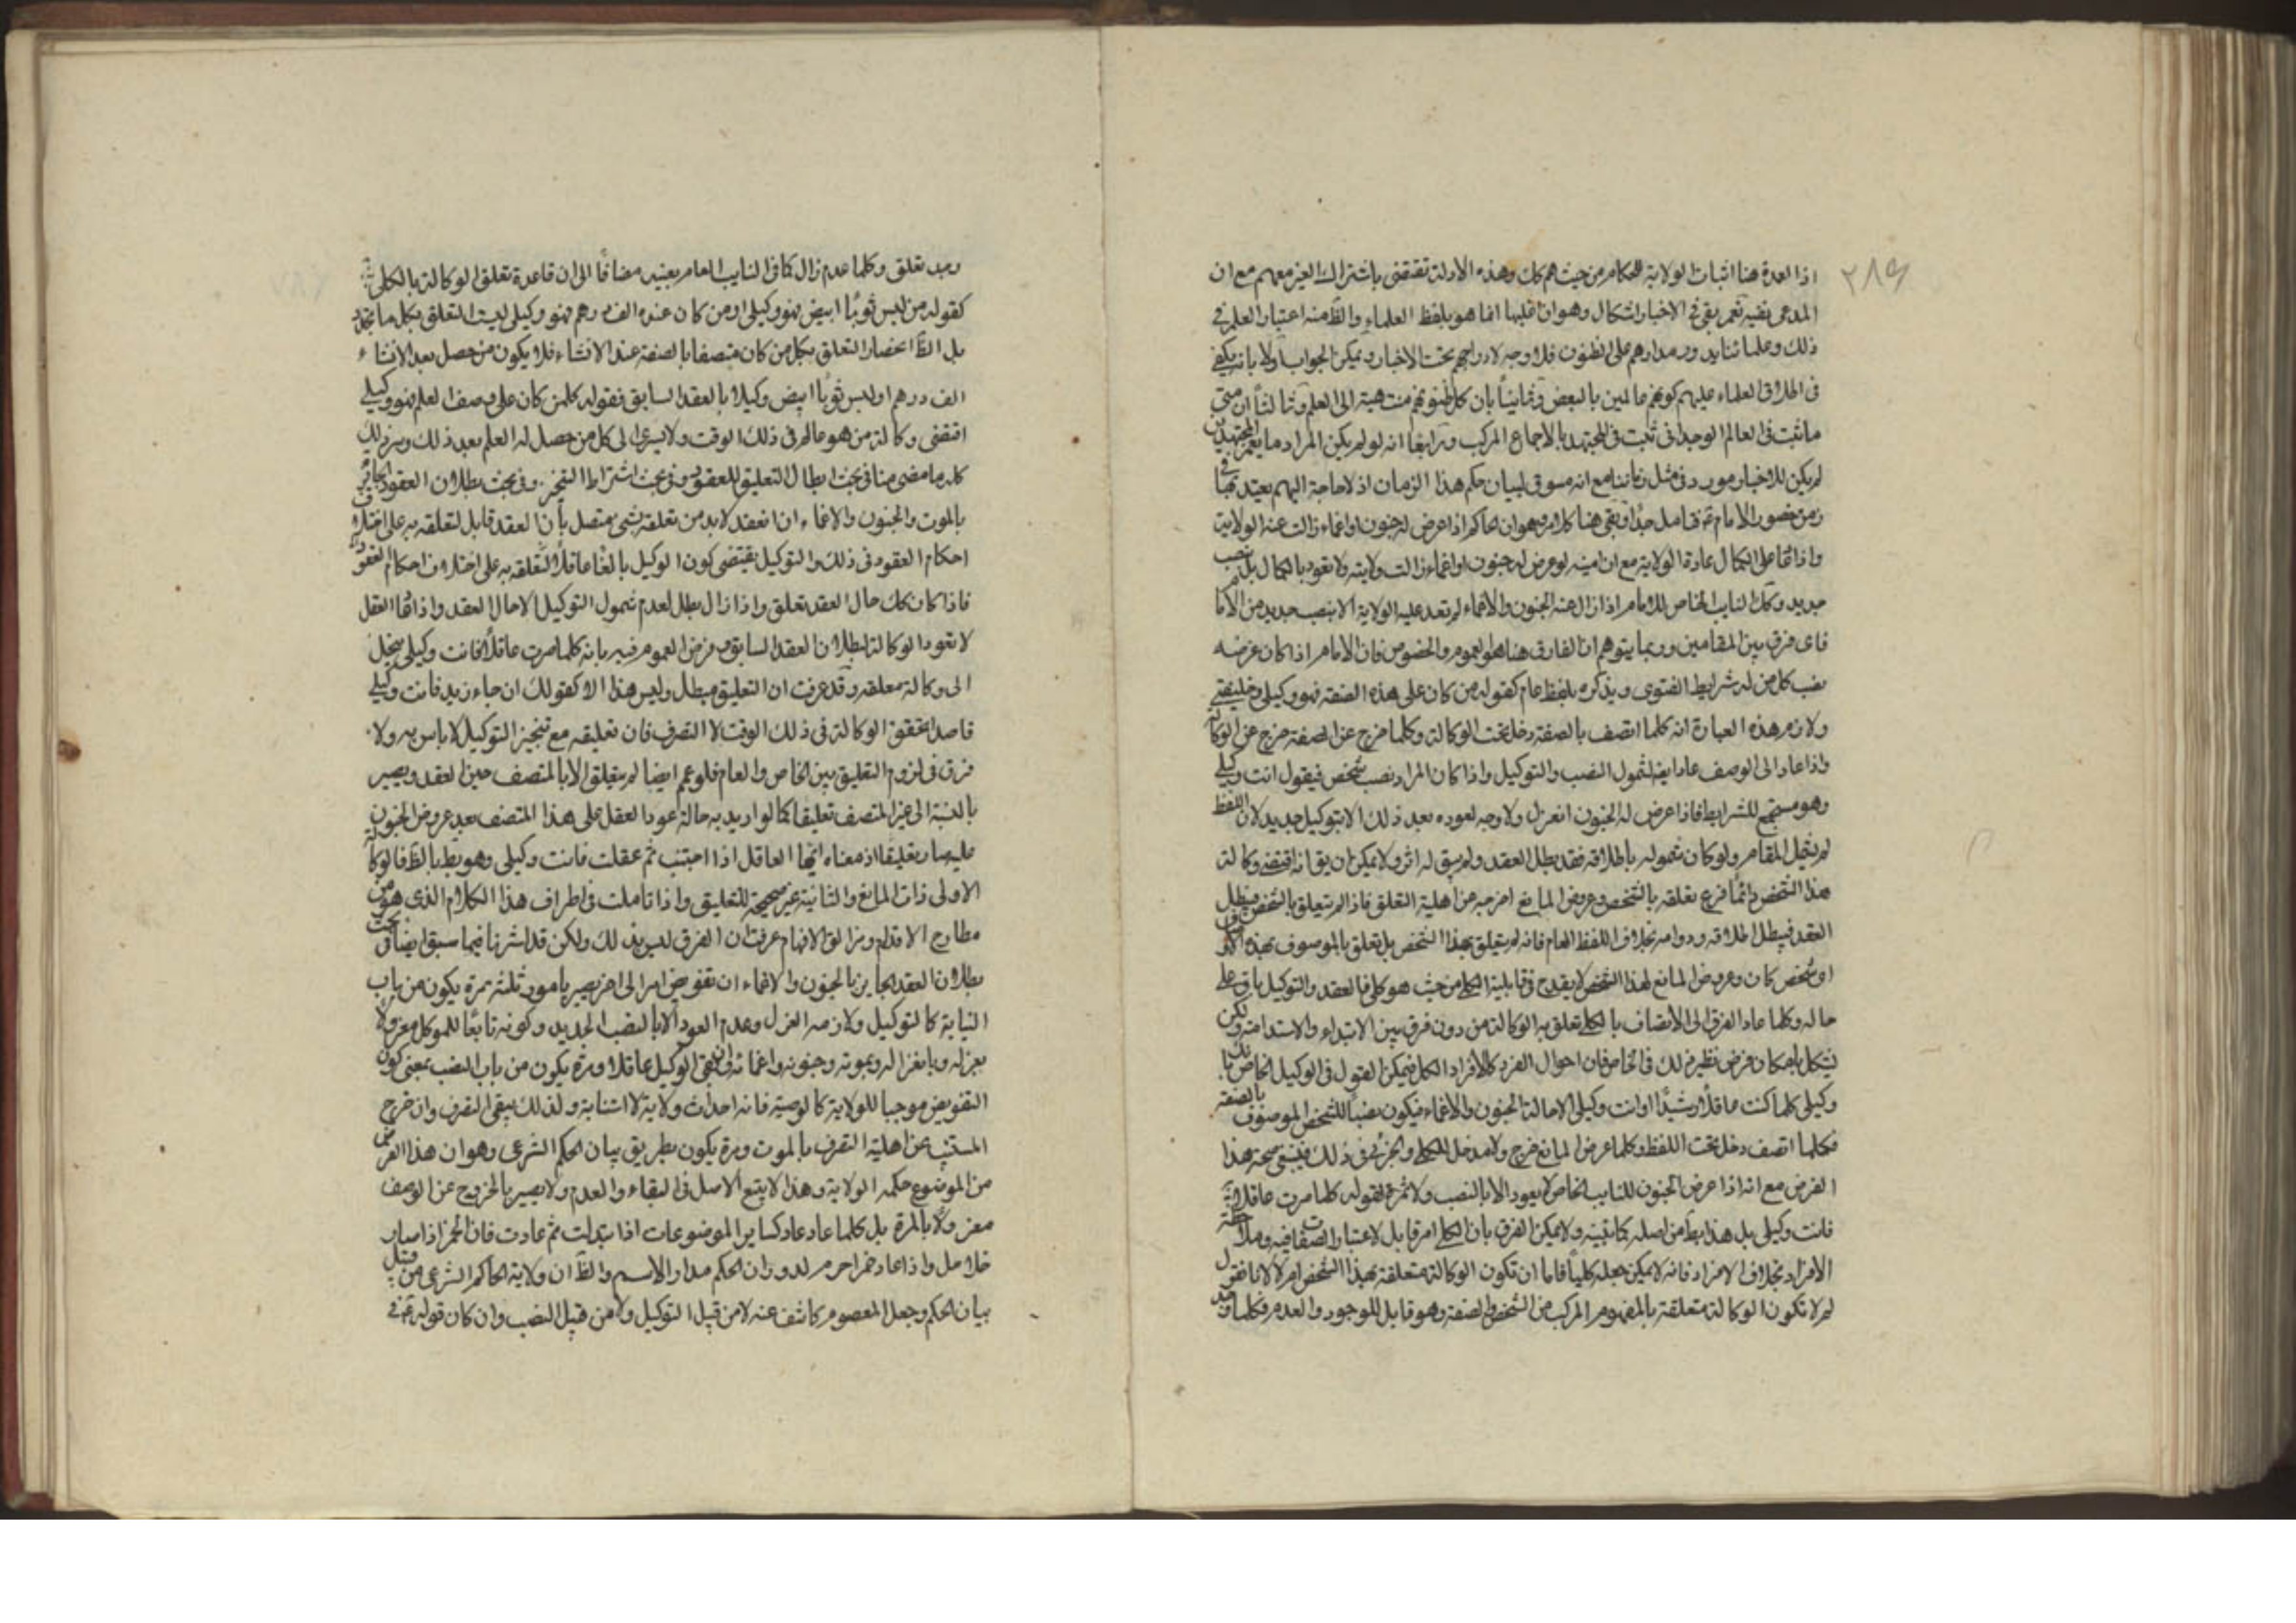 ٢٨٤
اذا العمدة هنا اثبات الولاية للحكام من حيث هم كك وهذه الادلة تقتضى باشتراك الغير معهم مع ان
المدعى نفيه نعم بقى فى الاخبار اشكال وهو ان غلبها انما هو بلفظ العلماء والظ منه اعتبار العلم فى
ذلك وعلمائنا يدور مدارهم على الظنون فلا وجه لادراجهم تحت الاخبار ويمكن الجواب اولا بانه يكفى
فى اطلاق العلماء عليهم كونهم عالمين بالبعض وثانيا بان كل ظنونهم منتهية الى العلم وثالثا ان متى
ما ثبت فى العالم الوجدانى ثبت فى المجتهد بالاجماع المركب ورابعا انه لو لم يكن المراد ما يعم المجتهدين
لم يكن للاخبار مورد فى مثل زماننا مع انه مسوق لبيان حكم هذا الزمان اذ لا حاجة اليهم يعتد بها فى
زمن حضور الامام فتامل جدا وبقى هنا كلام وهو ان الحاكم اذا عرض له جنون او اغماء زالت عنه الولاية
واذا عاد الى الكمال عادة الولاية مع ان امينه لو عرض له جنون او اغماء زالت ولايته ولا تعود بالكمال بل بنصب
جديد وكك النايب الخاص للامام اذا زال عنه الجنون والاغماء لم تعد عليه الولاية الا بنصب جديد من الامام
فاى فرق بين المقامين وربما يتوهم ان الفارق هنا هو العموم والخصوص فان الامام اذا كان غرضه
نصب كل من له شرايط الفتوى ويذكره بلفظ عام كقوله من كان على هذه الصفة فهو وكيلى وخليفتى
ولازم هذه العبارة انه كلما اتصف بالصفة دخل تحت الوكالة وكلما خرج عن الصفة خرج عن الوكالة
واذا عاد الى الوصف عاد ايضا لشمول النصب والتوكيل واذا كان المراد نصب شخص فيقول انت وكيلى
وهو مستجمع للشرايط فاذا عرض له الجنون انعزل ولا وجه لعوده بعد ذلك الا بتوكيل جديد لان اللفظ
لم يشمل المقام ولو كان شموله باطلاقه فقد بطل العقد ولم يبق له اثر ولا يمكن ان يق انه اقتضى وكالة
هذا الشخص دائما فرع تعلقه بالشخص وعروض المانع اخرجه عن اهلية التعلق فاذا لم يتعلق بالشخص فيبطل
العقد فيبطل اطلاقه ودوامه بخلاف اللفظ العام فانه لم يتعلق بهذا الشخص بل تعلق بالموصوف بهذه
اى شخص كان وعروض المانع لهذا الشخص لا يقدح فى قابلية الكلى من حيث هو كلى فالعقد والتوكيل باق على
حاله وكلما عاد الفرق الى الاتصاف بالكلى تعلق به الوكالة من دون فرق بين الابتداء والاستدامة ولكن
يشكل بامكان فرض نظير ذلك فى الخاص فان احوال الفرد كالافراد الكلى فيمكن القول فى الوكيل الخاص
وكيلى كلما كنت عاقلا رشيدا او انت وكيلى الا حالة الجنون والاغماء فيكون نصبا للشخص الموصوف بالصفة
فكلما اتصف دخل تحت اللفظ وكلما عرض المانع خرج ولا مدخل للكلى والجزئى فى ذلك فينبغى صحة هذا
الفرض مع انه اذا عرض الجنون للنايب الخاص لا يعود الا بالنصب ولا ثمرة لقوله كلما صرت عاقلا
فانت وكيلى بل هذا بط من اصله كما تبينه ولا يمكن الفرق بان الكلى امر قابل لاعتبار الصفات فيه وملاحظة
الافراد بخلاف الافراد فانه لا يمكن جعله كليا فاما ان تكون الوكالة متعلقة بهذا الشخص ام لا لانا نقول
لم لا تكون الوكالة متعلقة بالمفهوم المركب من الشخص والصفة وهو قابل للموجود والعدم فكلما وجد
وجد تعلق وكلما عدم زال كما فى النايب العام بعينه مضافا الى ان قاعدة تعلق الوكالة بالكلى
كقوله من لبس ثوبا ابيض فهو وكيلى او من كان عنده الف درهم فهو وكيلى ليت التعلق بكل ما تجدد
بل الظ انحصار التعلق بكل من كان متصفا بالصفة عند الانشاء فلا يكون من حصل بعد الانشاء
الف درهم او لبس ثوبا ابيض وكيلا بالعقد السابق فقوله كلمن كان على وصف العلم فهو وكيلى
اقتضى وكالة من هو عالم فى ذلك الوقت ولا يسرى الى كل من حصل له العلم بعد ذلك وسر ذلك
كله ما مضى منا فى بحث ابطال التعليق للعقود وفى بحث اشتراط التنجيز وفى بحث بطلان العقود الجائزة
بالموت والجنون والاغماء ان العقد لابد من تعلقه بشئ متصل بان العقد قابل لتعلقه به على اختلاف
احكام العقود فى ذلك والتوكيل يقتضى كون الوكيل بالغا عاقلا لتعلقه به على اختلاف احكام العقود
فاذا كان كك حال العقد تعلق واذا زال بطل لعدم شمول التوكيل الا حال العقد واذا عاد العقل
لا تعود الوكالة لبطلان العقد السابق وفرض العموم فيه بانه كلما صرت عاقلا فانت وكيلى ينحل
الى وكالة معلقة وقد عرفت ان التعليق مبطل وليس هذا الا كقولك ان جاء زيد فانت وكيلى
قاصدا تحقق الوكالة فى ذلك الوقت لا التصرف فان تعليقه مع تنجيز التوكيل لا باس به ولا
فرق فى لزوم التعليق بين الخاص والعام فلو عمم ايضا لم يتعلق الا بالمتصف حين العقد ويصير
بالنسبة الى غير المتصف تعليقا كما لو اريد به حالة عود العقل على هذا المتصف بعد عروض الجنون
عليه صار تعليقا اذ معناه ايها العاقل اذا اجننت ثم عقلت فانت وكيلى وهو بط بالظ فالوكالة
الاولى ذات المانع والثانية غير صحيحة للتعليق واذا تاملت فى اطراف هذا الكلام الذى هو من
مطارح الاقدام ومزالق الافهام عرفت ان الفرق ليس بذلك ولكن قد اشرنا فيما سبق ايضا فى بحث
بطلان العقد الجايز بالجنون والاغماء ان تفويض امر الى اخر يصير بامور ثلثة مرة يكون من باب
النيابة كالتوكيل ولازمه العزل وعدم العود الا بالنصب الجديد وكونه تابعا للموكل معزولا
بعزله وبانعزاله وبموته وجنونه واغمائه وان بقى الوكيل عاقلا ومرة يكون من باب النصب بمعنى كون
التفويض موجبا للولاية كالوصية فانه احداث ولاية لا استنابة ولذلك يبقى التصرف وان خرج
المستنيب عن اهلية التصرف بالموت ومرة يكون بطريق بيان الحكم الشرعى وهو ان هذا الفرض
من الموضوع حكمه الولاية وهذا لا يتبع الاصل فى البقاء والعدم ولا يصير بالخروج عن الوصف
معزولا بالمرة بل كلما عاد عاد كساير الموضوعات اذا تبدلت ثم عادت فان الخمر اذا صار
خلا حل واذا عاد خمرا حرم لدوران الحكم مدار الاسم والظ ان ولاية الحاكم الشرعى من قبيل
بيان الحكم وجعل المعصوم كاشف عنه لا من قبيل التوكيل ولا من قبيل النصب وان كان قوله فى